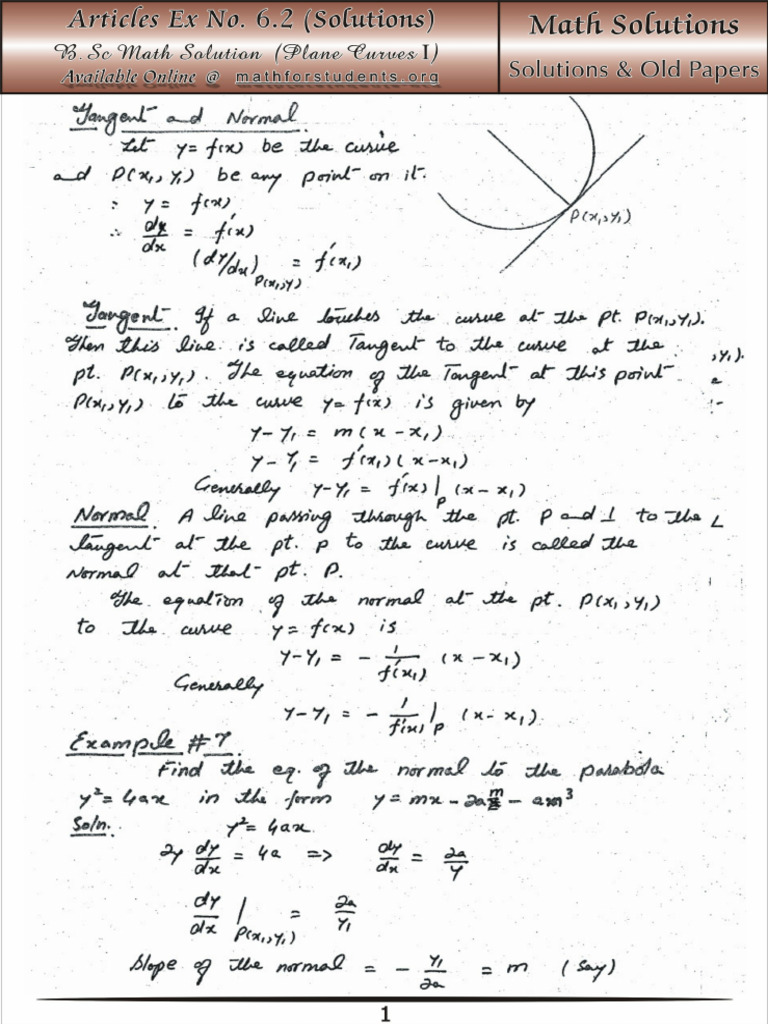 Articles Ex No. 6.2 (Solutions)
B.Sc Math Solution (Plane Curves I)
Available Online @ mathforstudents.org
Math Solutions
Solutions & Old Papers
Tangent and Normal
Let y = f(x) be the curve
and P(x₁, y₁) be any point on it.
∵ y = f(x)
∴ dy/dx = f'(x)
(dy/dx)P(x₁,y₁) = f'(x₁)
P(x₁,y₁)
Tangent. If a line touches the curve at the pt. P(x₁,y₁).
Then this line is called Tangent to the curve at the
pt. P(x₁,y₁). The equation of the Tangent at this point
P(x₁,y₁) to the curve y = f(x) is given by
y-y₁ = m(x-x₁)
y-y₁ = f'(x₁)(x-x₁)
Generally y-y₁ = f'(x)|P (x-x₁)
,y₁).
Normal. A line passing through the pt. P and ⊥ to the
tangent at the pt. P to the curve is called the
Normal at that pt. P.
The equation of the normal at the pt. P(x₁,y₁)
to the curve y = f(x) is
y-y₁ = - 1/f'(x₁) (x-x₁)
Generally
y-y₁ = - 1/f'(x)|P (x-x₁)
Example #7.
Find the eq. of the normal to the parabola
y² = 4ax in the form y = mx - 2am - am³
Soln. y² = 4ax
2y dy/dx = 4a => dy/dx = 2a/y
dy/dx |P(x₁,y₁) = 2a/y₁
Slope of the normal = - y₁/2a = m (say)
1